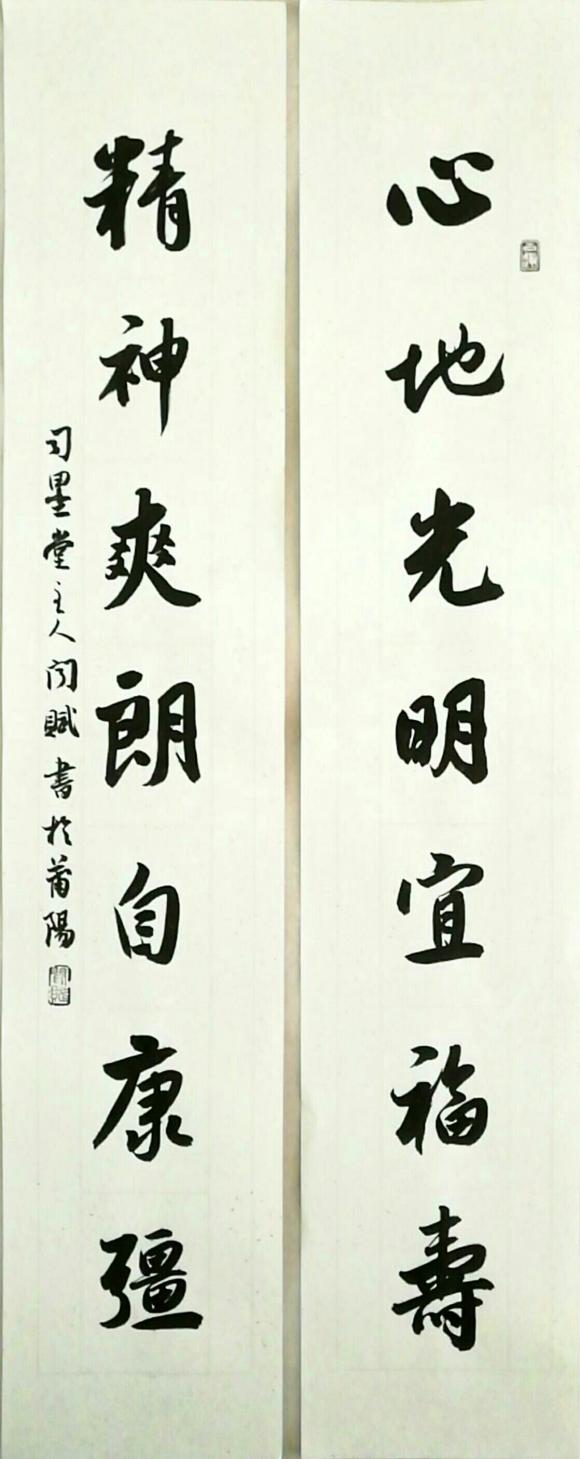 心地光明宜福壽
精神爽朗自康彊
司墨堂主人閔賦書於莆陽